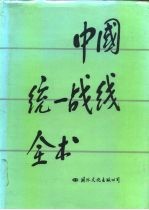 中國
统一战线
全书
国际文化出版公司